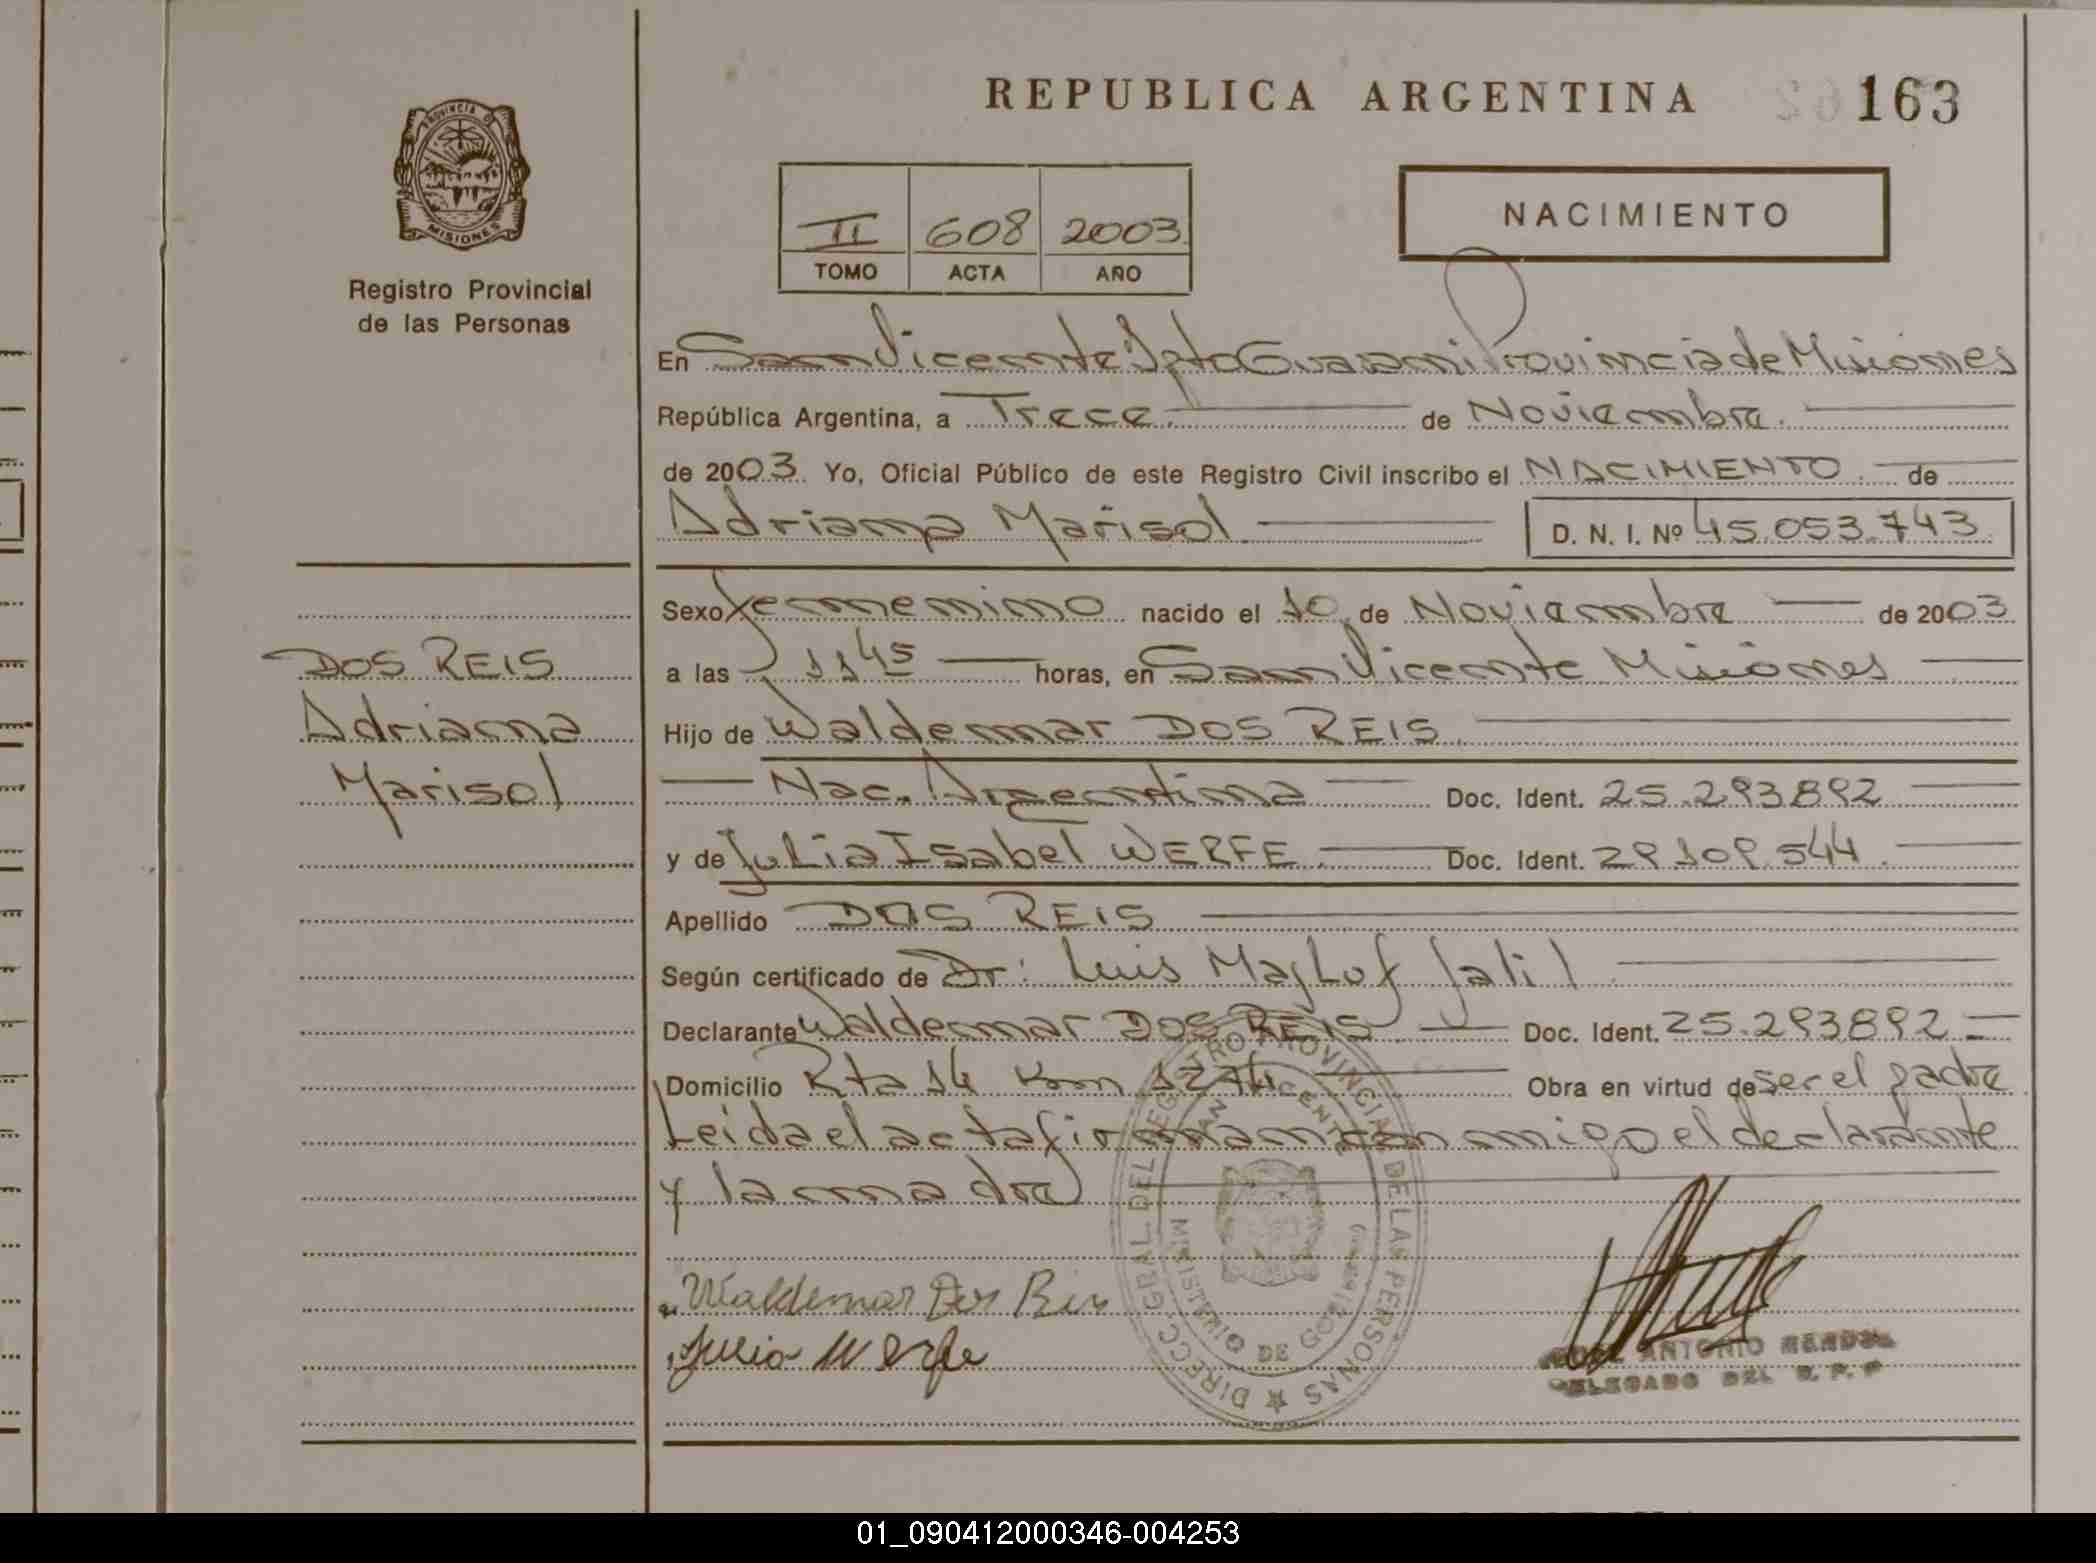 REPUBLICA ARGENTINA
163
PROVINCIA DE
MISIONES
Registro Provincial
de las Personas
II 608 2003
TOMO ACTA AÑO
NACIMIENTO
En San Vicente Dpto Guarani Provincia de Misiones
República Argentina, a Trece de Noviembre.
de 2003. Yo, Oficial Público de este Registro Civil inscribo el NACIMIENTO de
Adriana Marisol D. N. I. Nº 45.053.743
Sexo femenino nacido el 10 de Noviembre de 2003
a las 11 45 horas, en San Vicente Misiones
Hijo de Waldemar DOS REIS
Nac. Argentina Doc. Ident. 25.293.892
y de Julia Isabel WERFE Doc. Ident. 29.109.544
Apellido DOS REIS
Según certificado de Dr: Luis Majluf Jalil
Declarante Waldemar DOS REIS Doc. Ident. 25.293.892
Domicilio Rta 14 Km 1274 Obra en virtud de ser el padre
Leida el acta firman conmigo el declarante
y la madre
DOS REIS
Adriana
Marisol
Waldemar Dos Reis
Julia Werfe
DIRECC. GRAL. DEL REGISTRO PROVINCIAL DE LAS PERSONAS
SAN VICENTE
MINISTERIO DE GOBIERNO
ANTONIO
DELEGADO DEL R. P. P
01_090412000346-004253